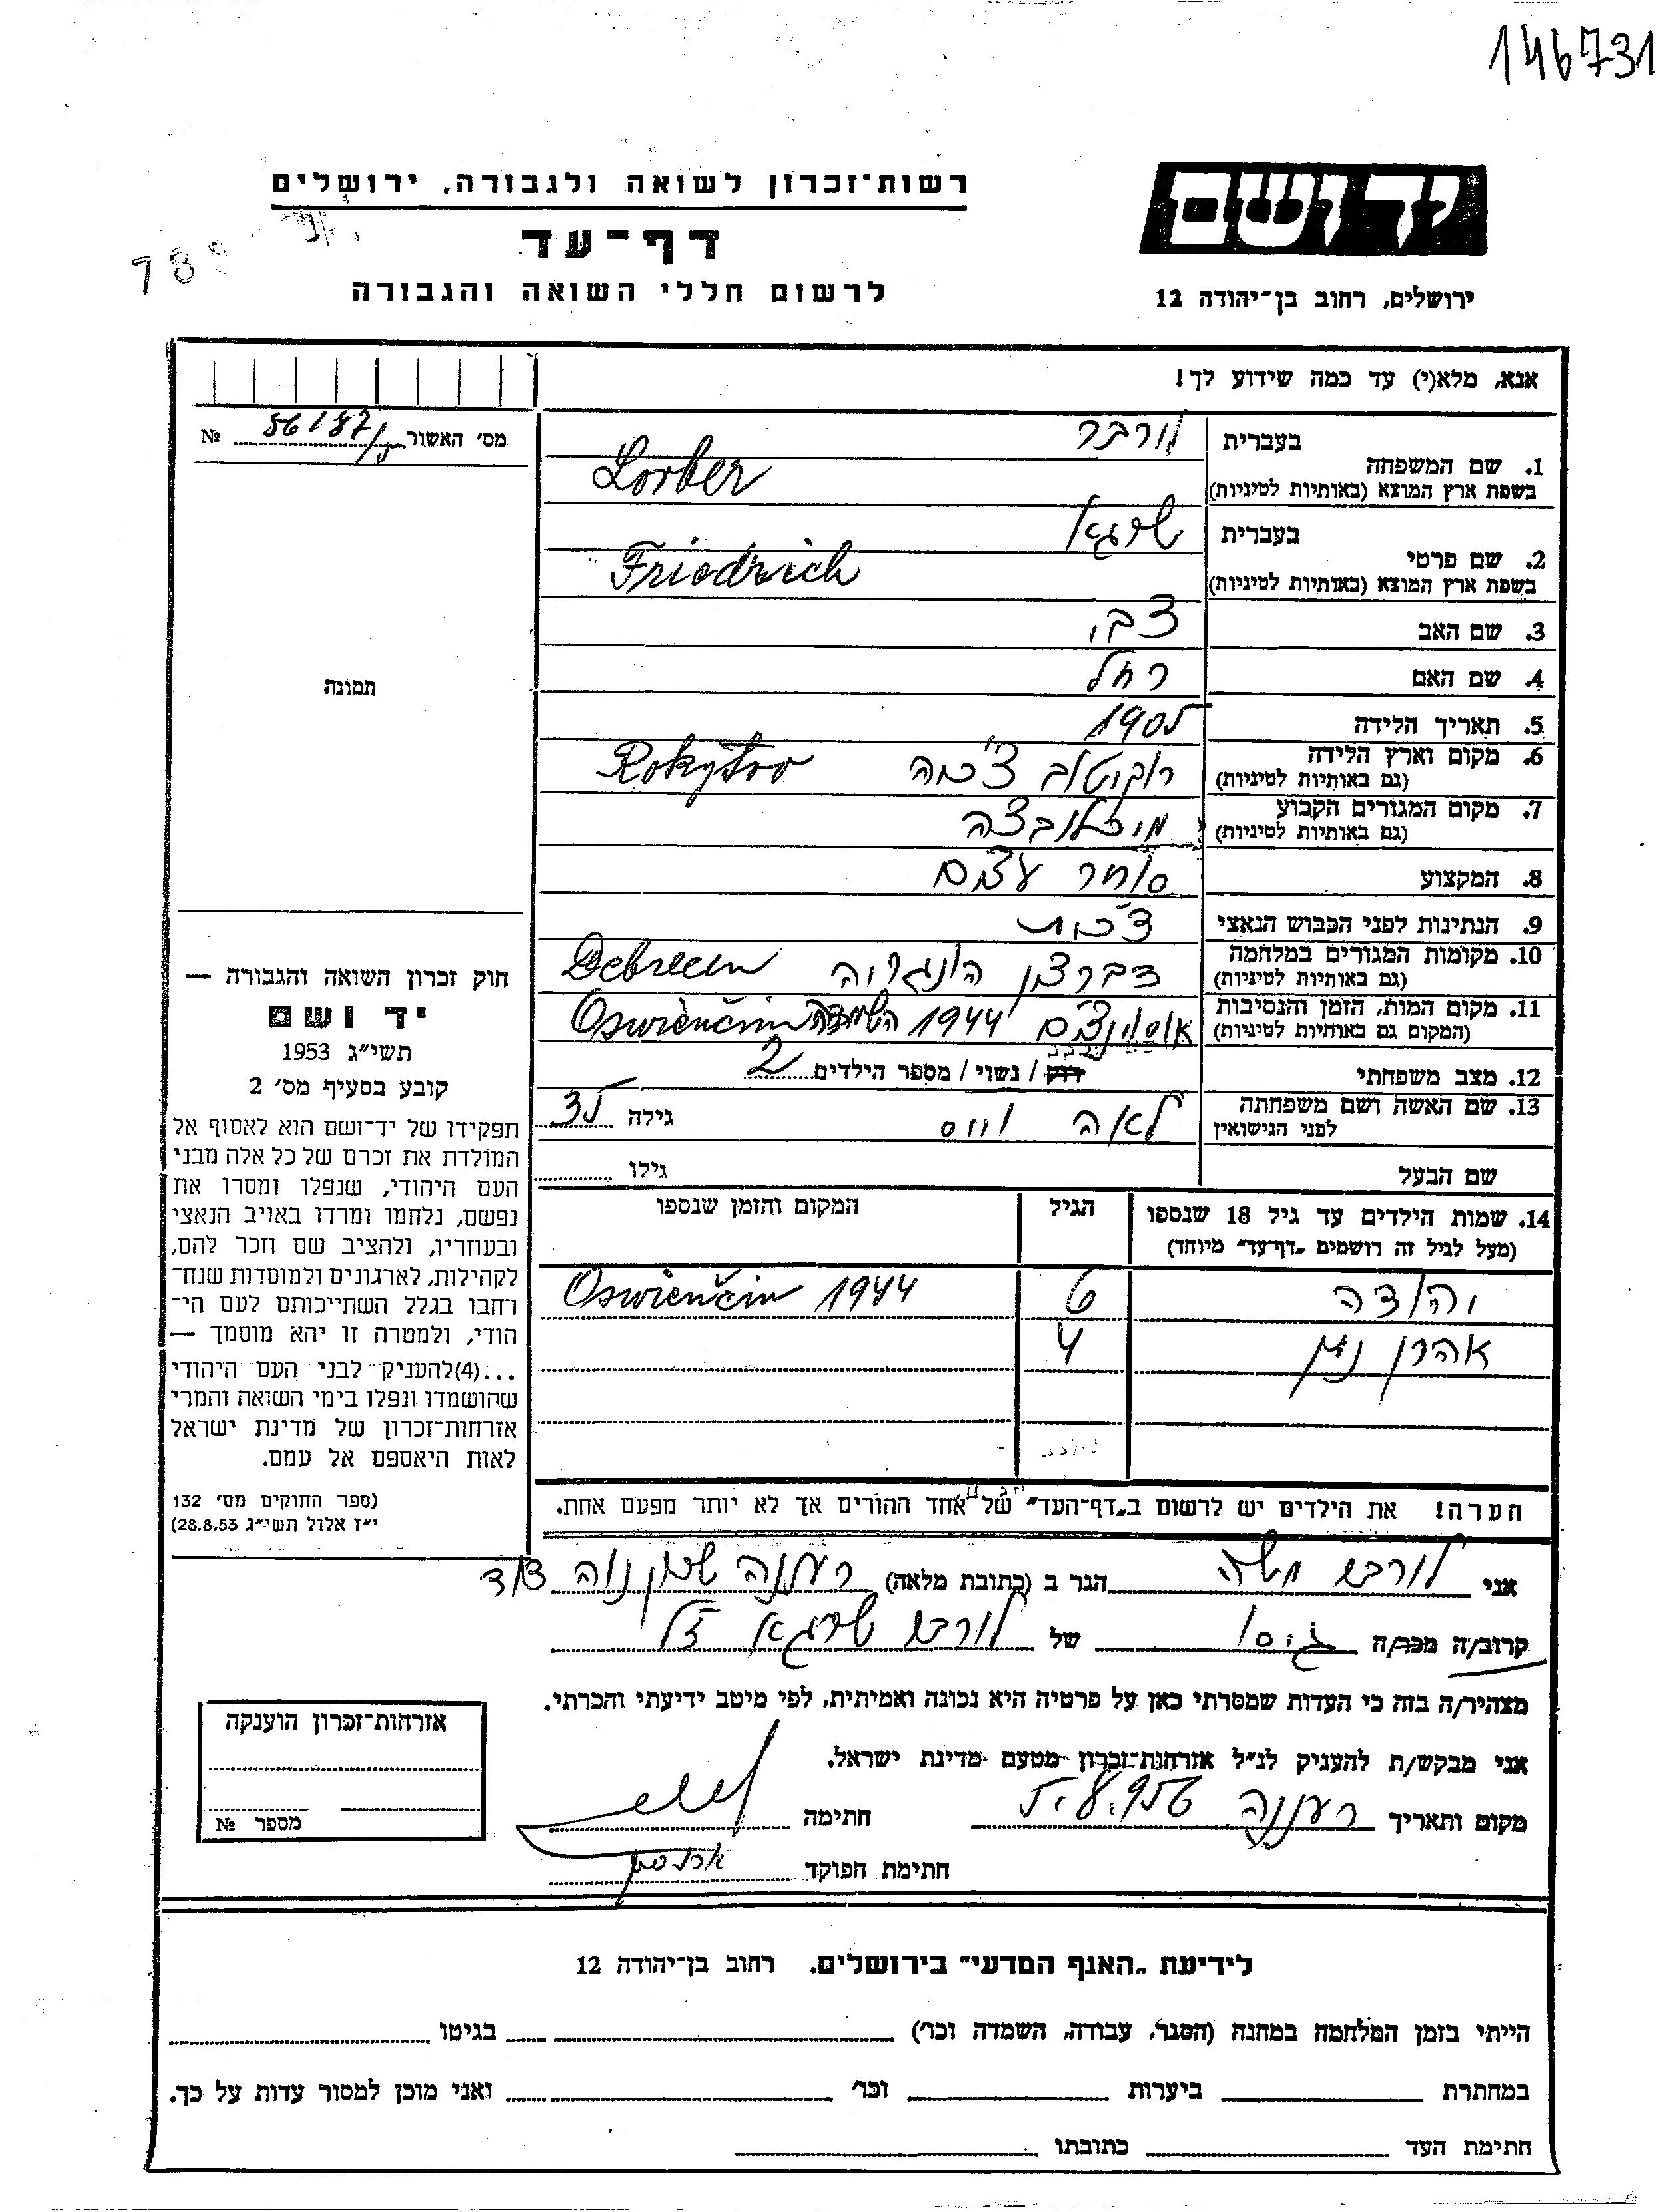 146731
יד ושם
רשות־זכרון לשואה ולגבורה, ירושלים
דף־עד
לרשום חללי השואה והגבורה
ירושלים, רחוב בן־יהודה 12
אנא, מלא(י) עד כמה שידוע לך!
מס׳ האשור № 56187/
1. שם המשפחה בעברית לורבר
בשפת ארץ המוצא (באותיות לטיניות) Lorber
2. שם פרטי בעברית שרגא
בשפת ארץ המוצא (באותיות לטיניות) Friedrich
3. שם האב צבי
4. שם האם רחל
5. תאריך הלידה 1905
6. מקום וארץ הלידה רוקיטוב צ'כיה Rokytov
(גם באותיות לטיניות)
7. מקום המגורים הקבוע מיכלובצה
(גם באותיות לטיניות)
8. המקצוע סוחר עצים
9. הנתינות לפני הכבוש הנאצי צ'כית
10. מקומות המגורים במלחמה דברצן הונגריה Debrecen
(גם באותיות לטיניות)
11. מקום המות, הזמן והנסיבות 1944 השמדה Oswienčim
(המקום גם באותיות לטיניות)
12. מצב משפחתי רווק / נשוי / מספר הילדים 2
13. שם האשה ושם משפחתה לאה וויס גילה 35
לפני הנישואין
שם הבעל גילו
14. שמות הילדים עד גיל 18 שנספו הגיל המקום והזמן שנספו
(מעל לגיל זה רושמים „דף־עד” מיוחד)
יהודה 6 Oswienčim 1944
אהרן 4
הערה! את הילדים יש לרשום ב„דף־העד” של אחד ההורים אך לא יותר מפעם אחת.
תמונה
חוק זכרון השואה והגבורה —
יד ושם
תשי״ג 1953
קובע בסעיף מס׳ 2
תפקידו של יד־ושם הוא לאסוף אל
המולדת את זכרם של כל אלה מבני
העם היהודי, שנפלו ומסרו את
נפשם, נלחמו ומרדו באויב הנאצי
ובעוזריו, ולהציב שם וזכר להם,
לקהילות, לארגונים ולמוסדות שנח־
רחבו בגלל השתייכותם לעם הי־
הודי, ולמטרה זו יהא מוסמך —
...(4)להעניק לבני העם היהודי
שהושמדו ונפלו בימי השואה והמרי
אזרחות־זכרון של מדינת ישראל
לאות היאספם אל עמם.
(ספר החוקים מס׳ 132
י״ז אלול תשי״ג 28.8.53)
אני לורבר משה הגר ב (כתובת מלאה) רעננה שכון נוה
קרוב/ה מכר/ה גיסו של לורבר שרגא ז״ל
מצהיר/ה בזה כי העדות שמסרתי כאן על פרטיה היא נכונה ואמיתית, לפי מיטב ידיעתי והכרתי.
אני מבקש/ת להעניק לנ״ל אזרחות־זכרון מטעם מדינת ישראל.
מקום ותאריך רעננה חתימה
חתימת הפוקד
אזרחות־זכרון הוענקה
מספר №
לידיעת „האגף המדעי” בירושלים. רחוב בן־יהודה 12
הייתי בזמן המלחמה במחנה (הסגר, עבודה, השמדה וכו׳) בגיטו
במחתרת ביערות וכו׳ ואני מוכן למסור עדות על כך.
חתימת העד כתובתו